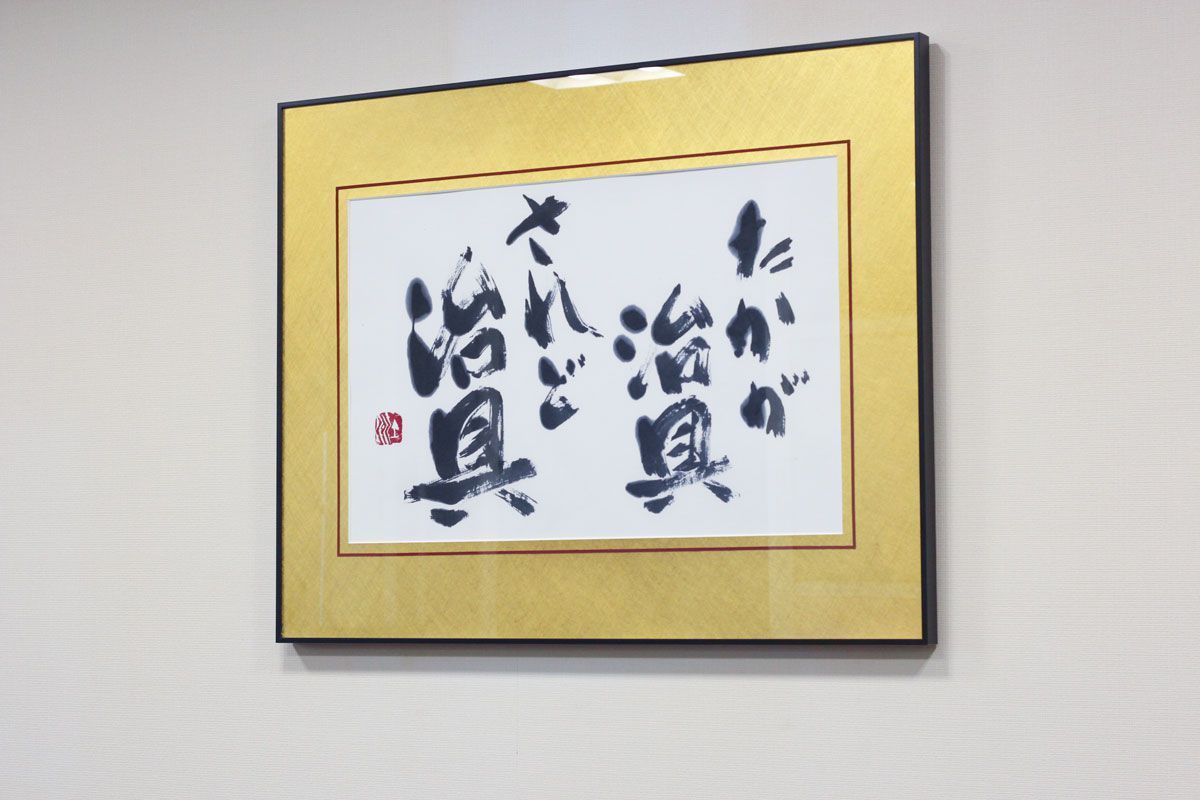 たかが
治具
されど
治具